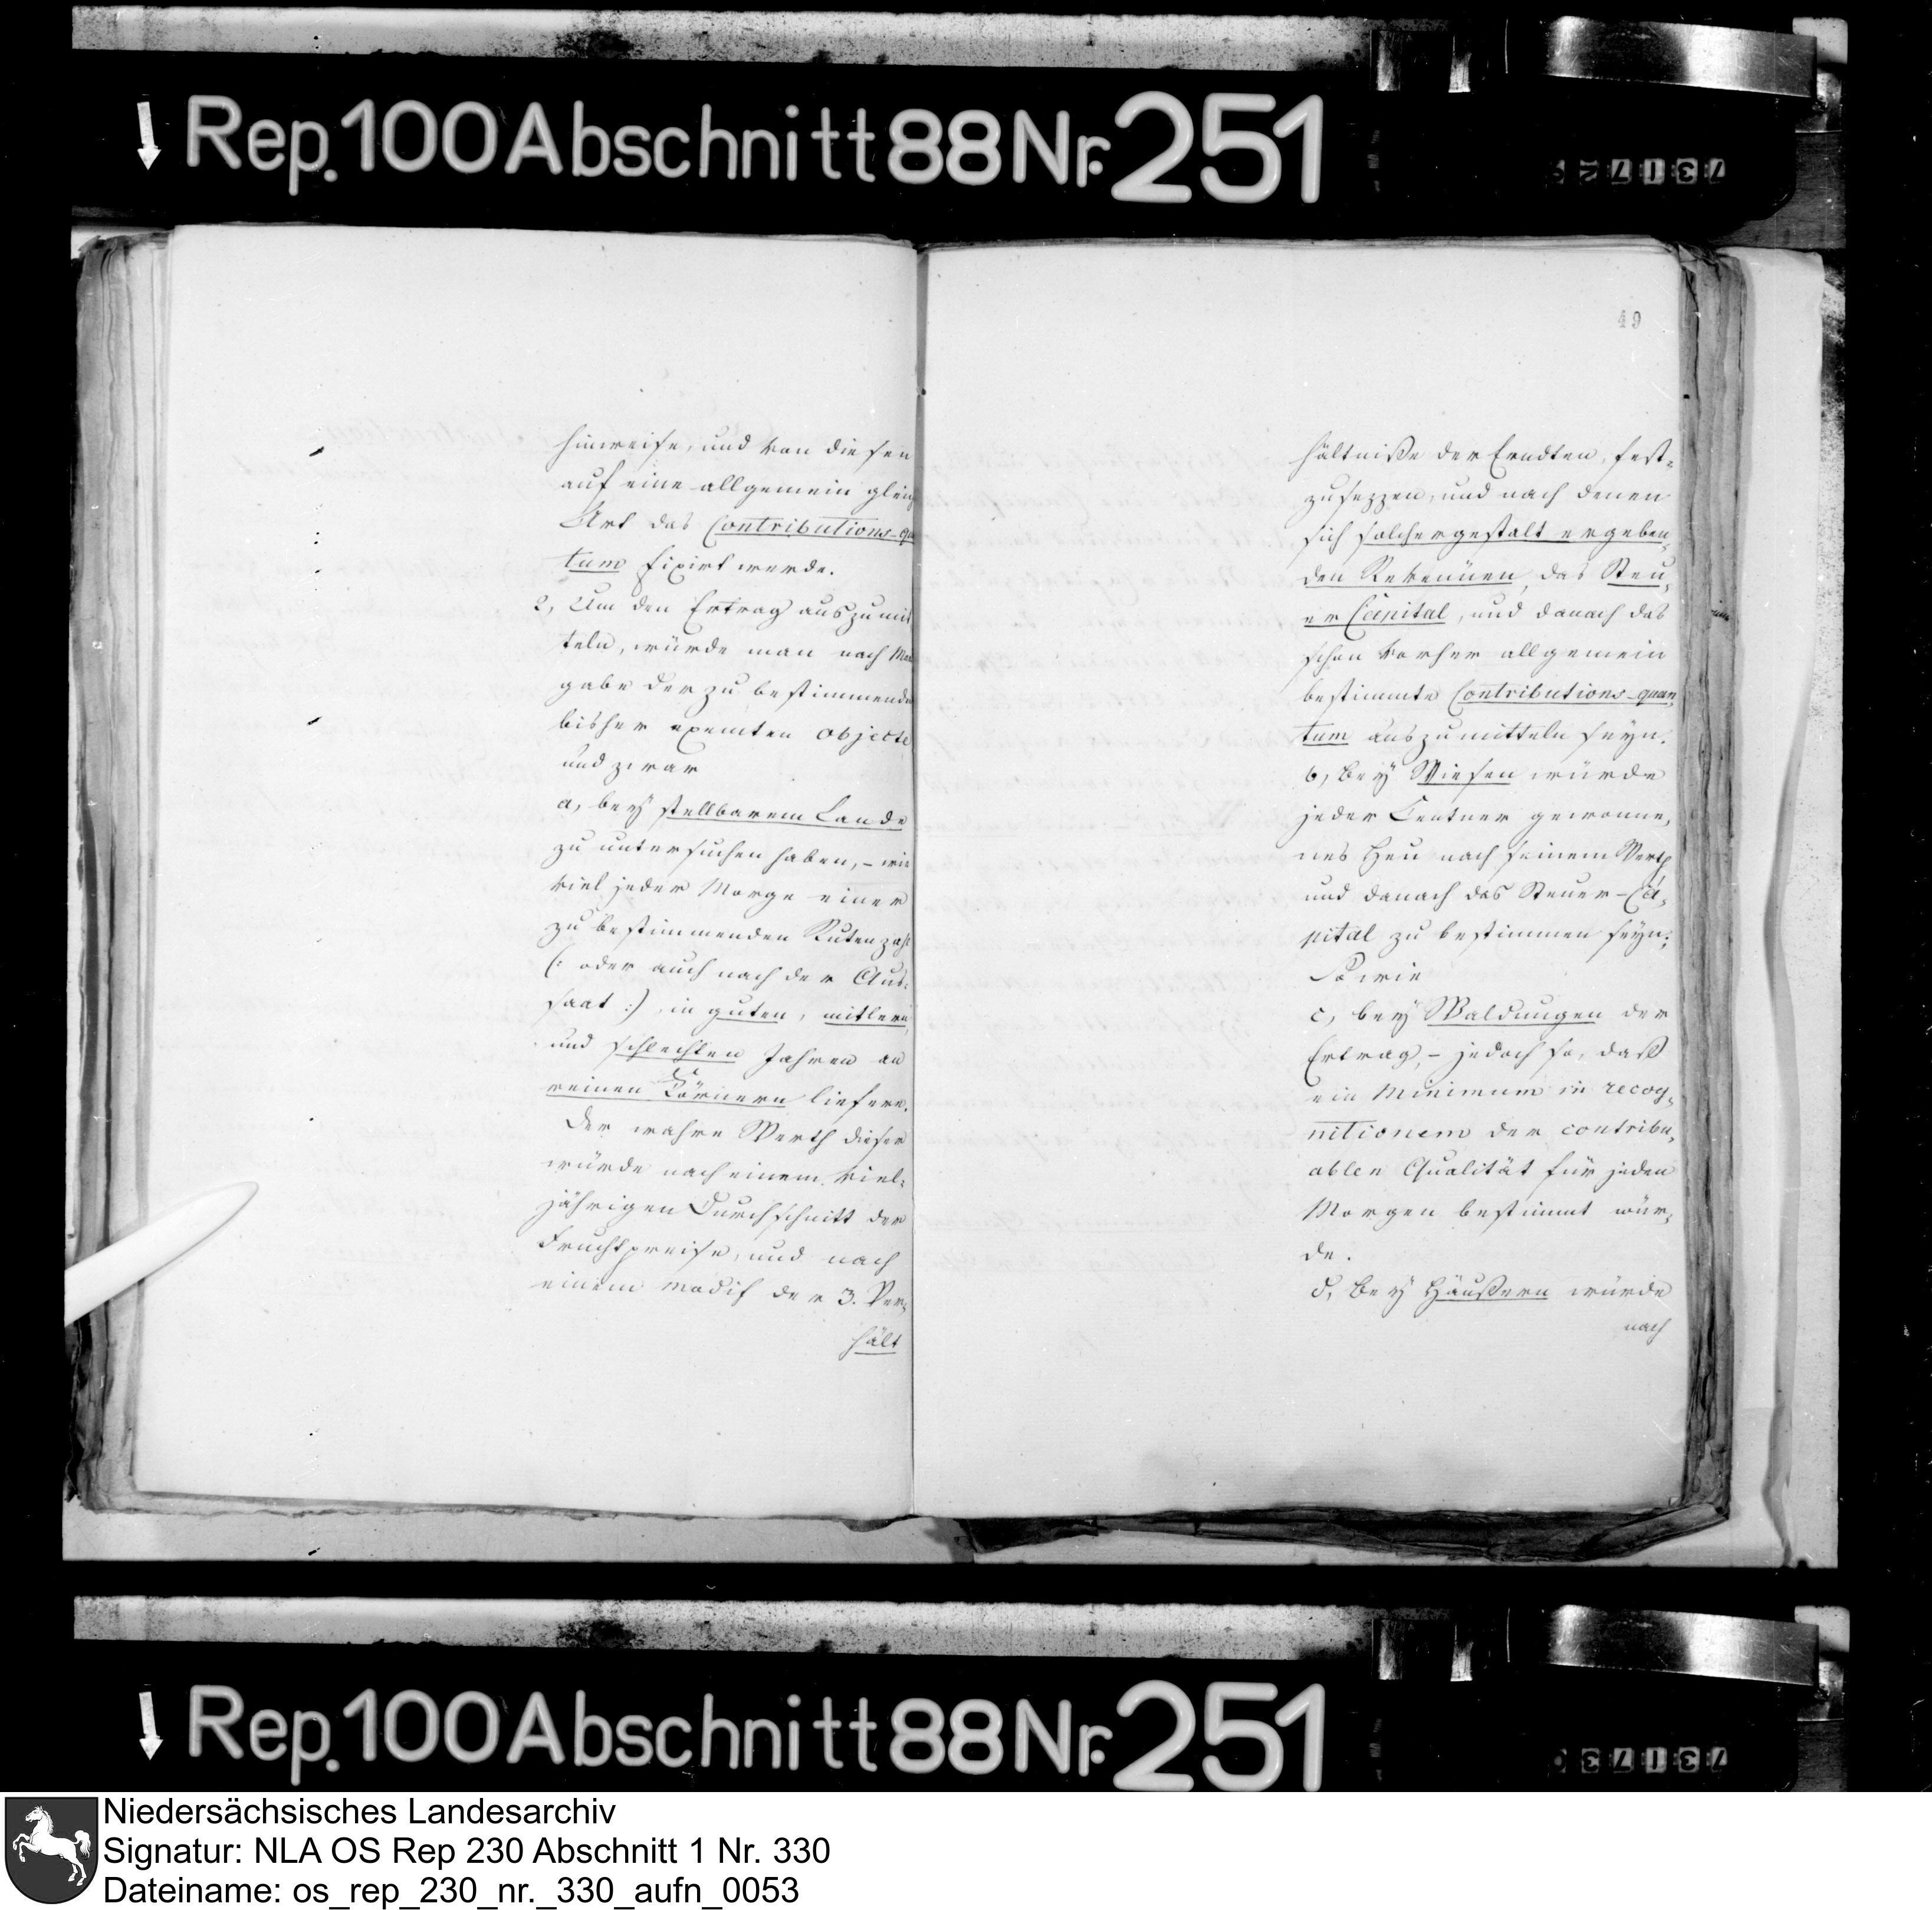 Rep. 100 Abschnitt 88 Nr. 251
49
hinweise, und von diesen
auf eine allgemein gleich
Art das Contributions-qu
tum fixirt werde.
2, Um den Ertrag auszumit
teln, würde man nach
gabe der zu bestimmende
bisher exemten Objecte
und zwar
a, bey stellbarem Lande
zu untersuchen haben, – wie
viel jeder Morge einer
zu bestimmenden Rutenzahl
(: oder auch nach der Aus:
saat :), in guten, mitlern
und schlechten Jahren an
reinen Körnern liefere.
Der wahre Werth dieser
würde nach einem viel:
jährigen Durchschnitt der
Fruchtpreise, und nach
einem modif der 3. Ver,
hält
hältniße der Erndten, fest=
zusezzen, und nach denen
sich solchergestalt ergeben,
den Revenüen, das Steu,
er Capital, und danach das
schon vorher allgemein
bestimmte Contributions-quan,
tum auszumitteln seyn.
b, bey Wiesen würde
jeder Centner gewonne,
nes Heu nach seinem Werth
und danach das Steuer-Ca,
pital zu bestimmen seyn;
So wie
c, bey Waldungen der
Ertrag, – jedoch so, daß
ein Minimum in recog,
nitionem der contribu,
ablen Qualität für jeden
Morgen bestimmt wür,
de.
d, bey Häußern würde
nach
Rep. 100 Abschnitt 88 Nr. 251
Niedersächsisches Landesarchiv
Signatur: NLA OS Rep 230 Abschnitt 1 Nr. 330
Dateiname: os_rep_230_nr._330_aufn_0053